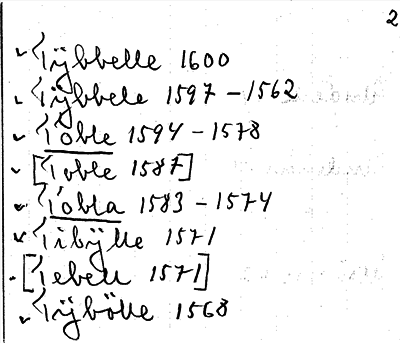 2
Tÿbbelle 1600
Tÿbbele 1597 – 1562
Tòble 1594 – 1578
[Toble 1587]
Tobla 1583 – 1574
Tibÿlle 1571
[Tebell 1571]
Tÿbölle 1568